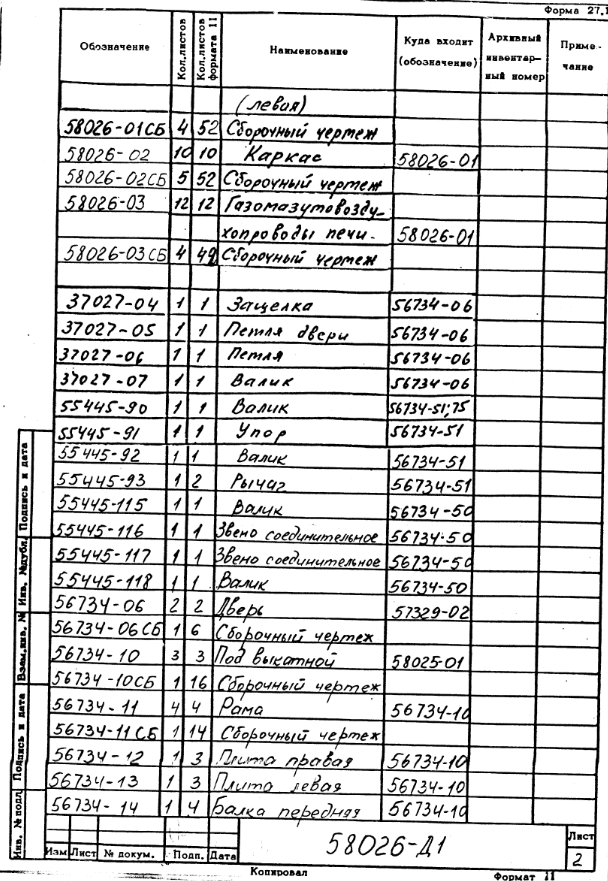 Форма 27.1
Обозначение Кол.листов Кол.листов формата 11 Наименование Куда входит (обозначение) Архивный инвентар- ный номер Приме- чание
(левая)
58026-01СБ 4 52 Сборочный чертеж
58026-02 10 10 Каркас 58026-01
58026-02СБ 5 52 Сборочный чертеж
58026-03 12 12 Газомазутовозду-
хопроводы печи. 58026-01
58026-03СБ 4 49 Сборочный чертеж
37027-04 1 1 Защелка 56734-06
37027-05 1 1 Петля двери 56734-06
37027-06 1 1 Петля 56734-06
37027-07 1 1 Валик 56734-06
55445-90 1 1 Валик 56734-51;75
55445-91 1 1 Упор 56734-51
55445-92 1 1 Валик 56734-51
55445-93 1 2 Рычаг 56734-51
55445-115 1 1 Валик 56734-50
55445-116 1 1 Звено соединительное 56734-50
55445-117 1 1 Звено соединительное 56734-50
55445-118 1 1 Валик 56734-50
56734-06 2 2 Дверь 57329-02
56734-06СБ 1 6 Сборочный чертеж
56734-10 3 3 Под выкатной 58025-01
56734-10СБ 1 16 Сборочный чертеж
56734-11 4 4 Рама 56734-10
56734-11СБ 1 14 Сборочный чертеж
56734-12 1 3 Плита правая 56734-10
56734-13 1 3 Плита левая 56734-10
56734-14 1 4 Балка передняя 56734-10
Инв. № подл. Подпись и дата Взам.инв. № Инв. №дубл. Подпись и дата
Изм Лист № докум. Подп. Дата
58026-Д1
Лист
2
Копировал Формат 11